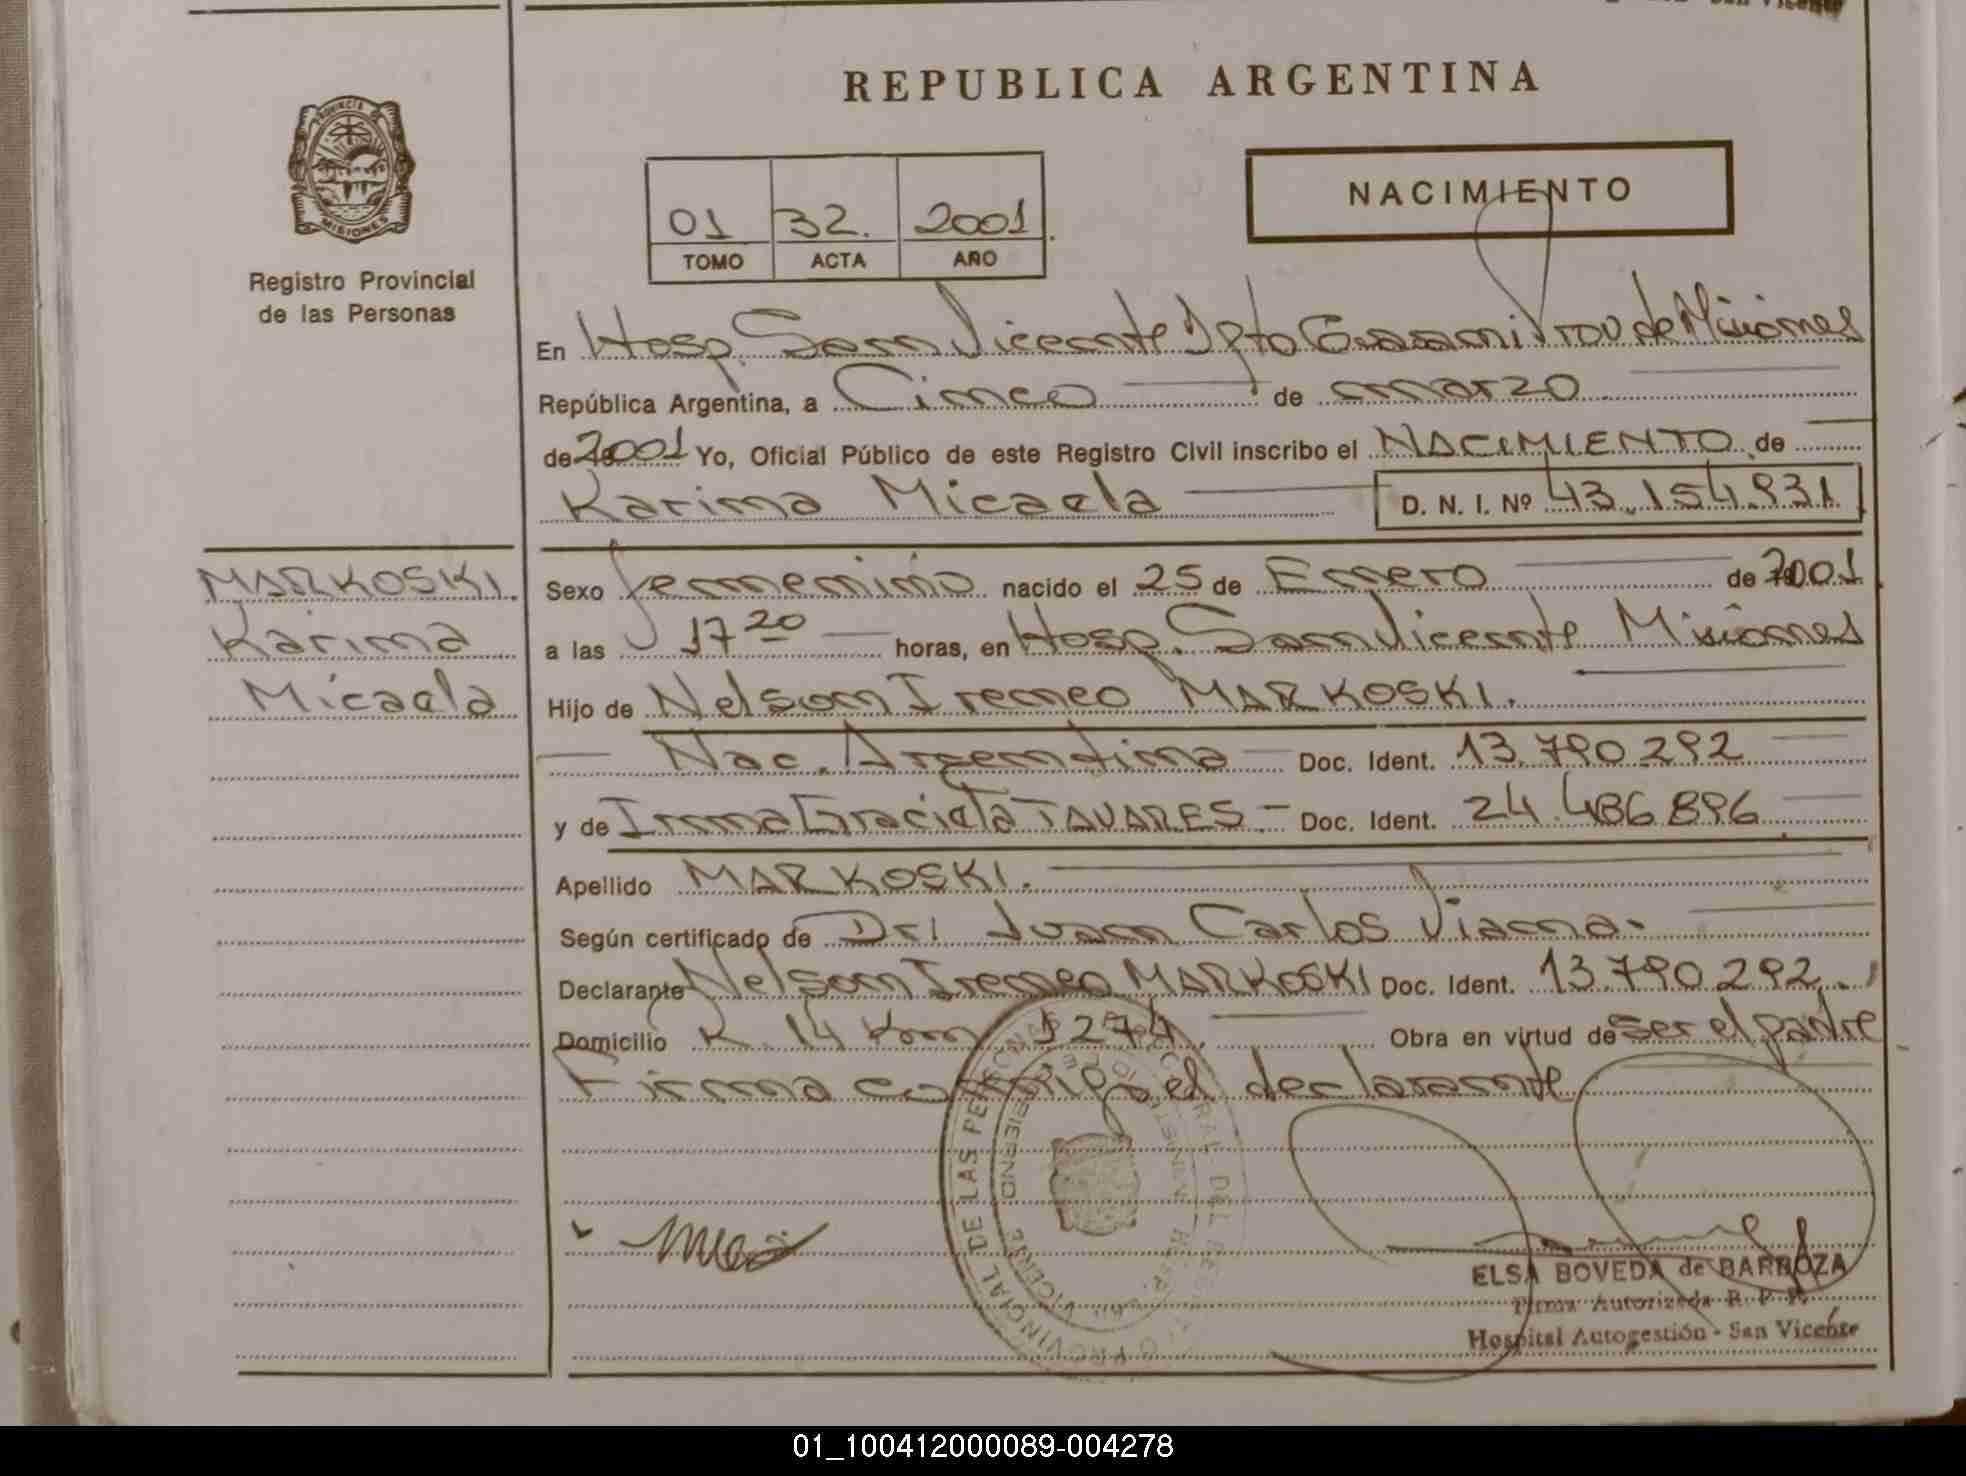 REPUBLICA ARGENTINA
PROVINCIA
MISIONES
Registro Provincial
de las Personas
01 32. 2001.
TOMO ACTA AÑO
NACIMIENTO
En Hosp. San Vicente Dpto Guarani Prov de Misiones
República Argentina, a Cinco de marzo
de 2001 Yo, Oficial Público de este Registro Civil inscribo el NACIMIENTO de
Karina Micaela D. N. I. Nº 43.154.931
MARKOSKI.
Karina
Micaela
Sexo femenino nacido el 25 de Enero de 2001
a las 17 20 horas, en Hosp. San Vicente Misiones
Hijo de Nelson Ireneo MARKOSKI.
Nac. Argentina Doc. Ident. 13.790.292
y de Irma Graciela TAVARES. Doc. Ident. 24.486.896
Apellido MARKOSKI.
Según certificado de Dr. Juan Carlos Viana.
Declarante Nelson Ireneo MARKOSKI Doc. Ident. 13.790.292.
Domicilio K. 14 Km 1274. Obra en virtud de ser el padre
Firma conmigo el declarante
PROVINCIAL DE LAS PERSONAS
SAN VICENTE
ELSA BOVEDA de BARBOZA
Firma Autorizada R. P. P.
Hospital Autogestión - San Vicente
01_100412000089-004278